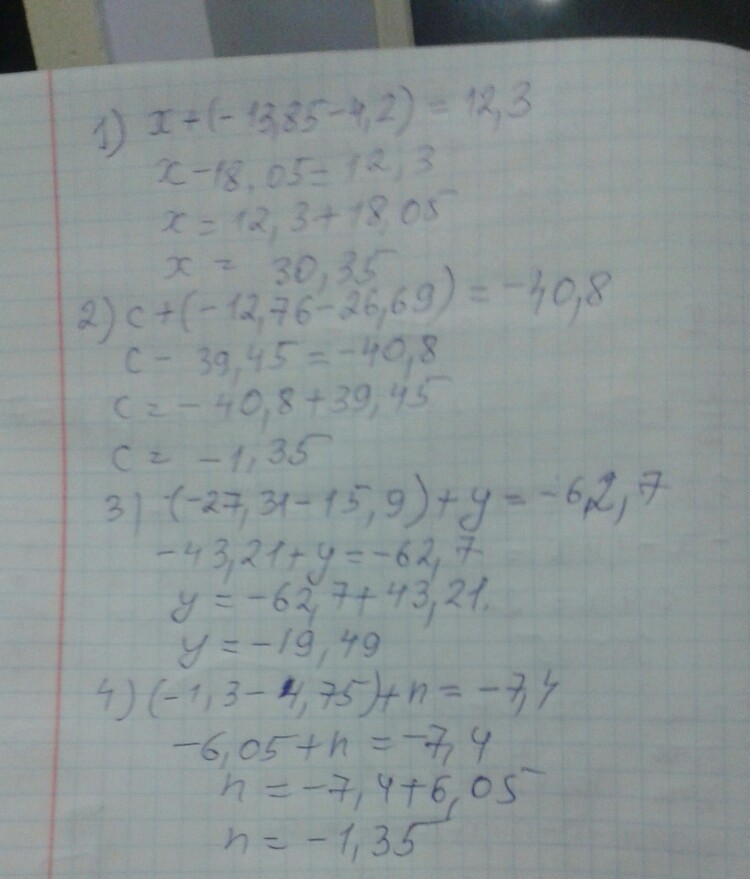 1) x+(-13,85-4,2) = 12,3
x-18,05=12,3
x=12,3+18,05
x= 30,35
2) c+(-12,76-26,69) = -40,8
c- 39,45=-40,8
c=-40,8+39,45
c= -1,35
3) (-27,31-15,9)+y=-62,7
-43,21+y=-62,7
y=-62,7+43,21.
y=-19,49
4) (-1,3-4,75)+n=-7,4
-6,05+n=-7,4
n=-7,4+6,05
n=-1,35